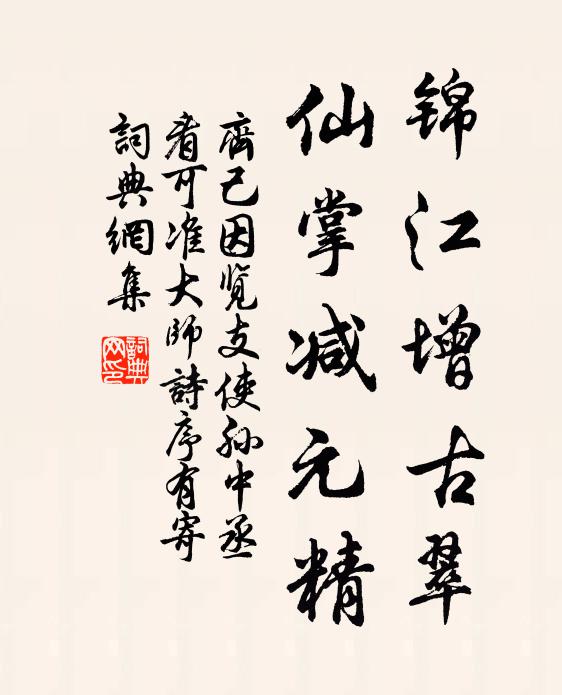 锦江增古翠
仙掌减元精
齊己因览支使孙中丞
看可准大師詩序有寄
詞典網集
詞典網印